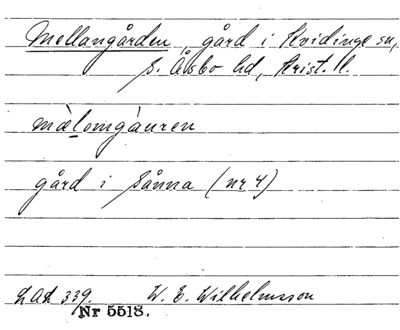 Mellangården, gård i Kvidinge sn,
S. Åsbo hd, Krist. l.
mæ̀lomgàuren
gård i Sånna (nr 4)
LAL 339. W. E. Wilhelmsson
Nr 5518.